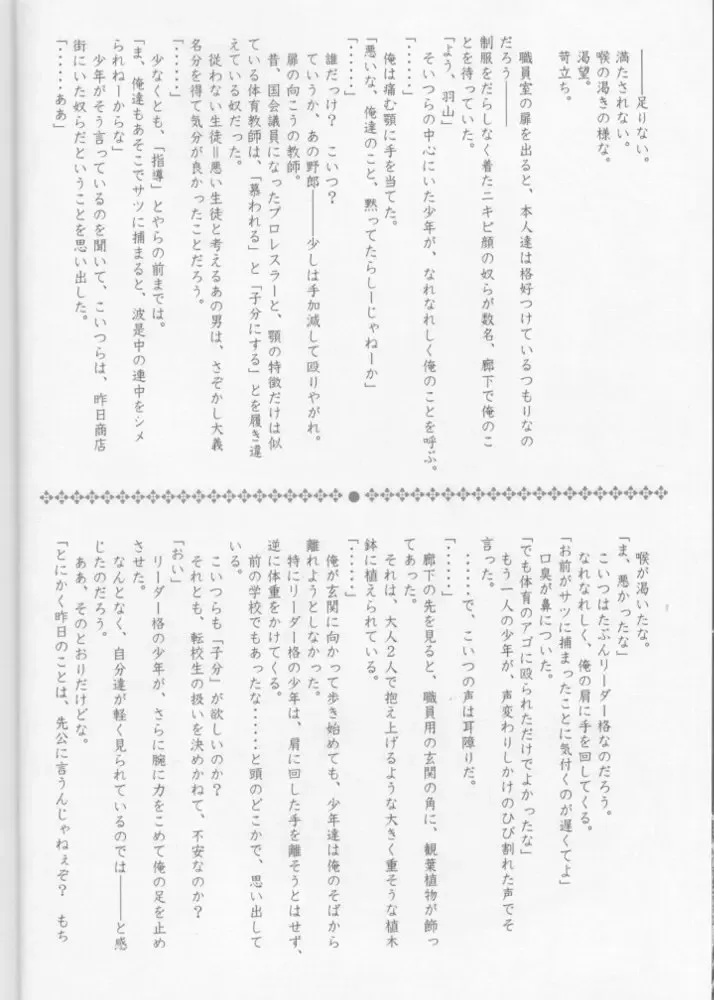 ───足りない。
満たされない。
喉の渇きの様な。
渇望。
苛立ち。
職員室の扉を出ると、本人達は格好つけているつもりなの
だろう───
制服をだらしなく着たニキビ顔の奴らが数名、廊下で俺のこ
とを待っていた。
「よう、羽山」
そいつらの中心にいた少年が、なれなれしく俺のことを呼ぶ。
「・・・・・」
俺は痛む顎に手を当てた。
「悪いな、俺達のこと、黙ってたらしーじゃねーか」
「・・・・・」
誰だっけ？　こいつ？
ていうか、あの野郎───少しは手加減して殴りやがれ。
扉の向こうの教師。
昔、国会議員になったプロレスラーと、顎の特徴だけは似
ている体育教師は、「慕われる」と「子分にする」とを履き違
えている奴だった。
従わない生徒＝悪い生徒と考えるあの男は、さぞかし大義
名分を得て気分が良かったことだろう。
「・・・・・」
少なくとも、「指導」とやらの前までは。
「ま、俺達もあそこでサツに捕まると、波是中の連中をシメ
られねーからな」
少年がそう言っているのを聞いて、こいつらは、昨日商店
街にいた奴らだということを思い出した。
「・・・・・ああ」
喉が渇いたな。
「ま、悪かったな」
こいつはたぶんリーダー格なのだろう。
なれなれしく、俺の肩に手を回してくる。
「お前がサツに捕まったことに気付くのが遅くてよ」
口臭が鼻についた。
「でも体育のアゴに殴られただけでよかったな」
もう一人の少年が、声変わりしかけのひび割れた声でそ
言った。
・・・・・・で、こいつの声は耳障りだ。
「・・・・・・」
廊下の先を見ると、職員用の玄関の角に、観葉植物が飾っ
てあった。
それは、大人２人で抱え上げるような大きく重そうな植木
鉢に植えられている。
「・・・・・」
俺が玄関に向かって歩き始めても、少年達は俺のそばから
離れようとしなかった。
特にリーダー格の少年は、肩に回した手を離そうとはせず、
逆に体重をかけてくる。
前の学校でもあったな・・・・・・と頭のどこかで、思い出して
いる。
こいつらも「子分」が欲しいのか？
それとも、転校生の扱いを決めかねて、不安なのか？
「おい」
リーダー格の少年が、さらに腕に力をこめて俺の足を止め
させた。
なんとなく、自分達が軽く見られているのでは───と感
じたのだろう。
ああ、そのとおりだけどな。
「とにかく昨日のことは、先公に言うんじゃねぇぞ？　もち